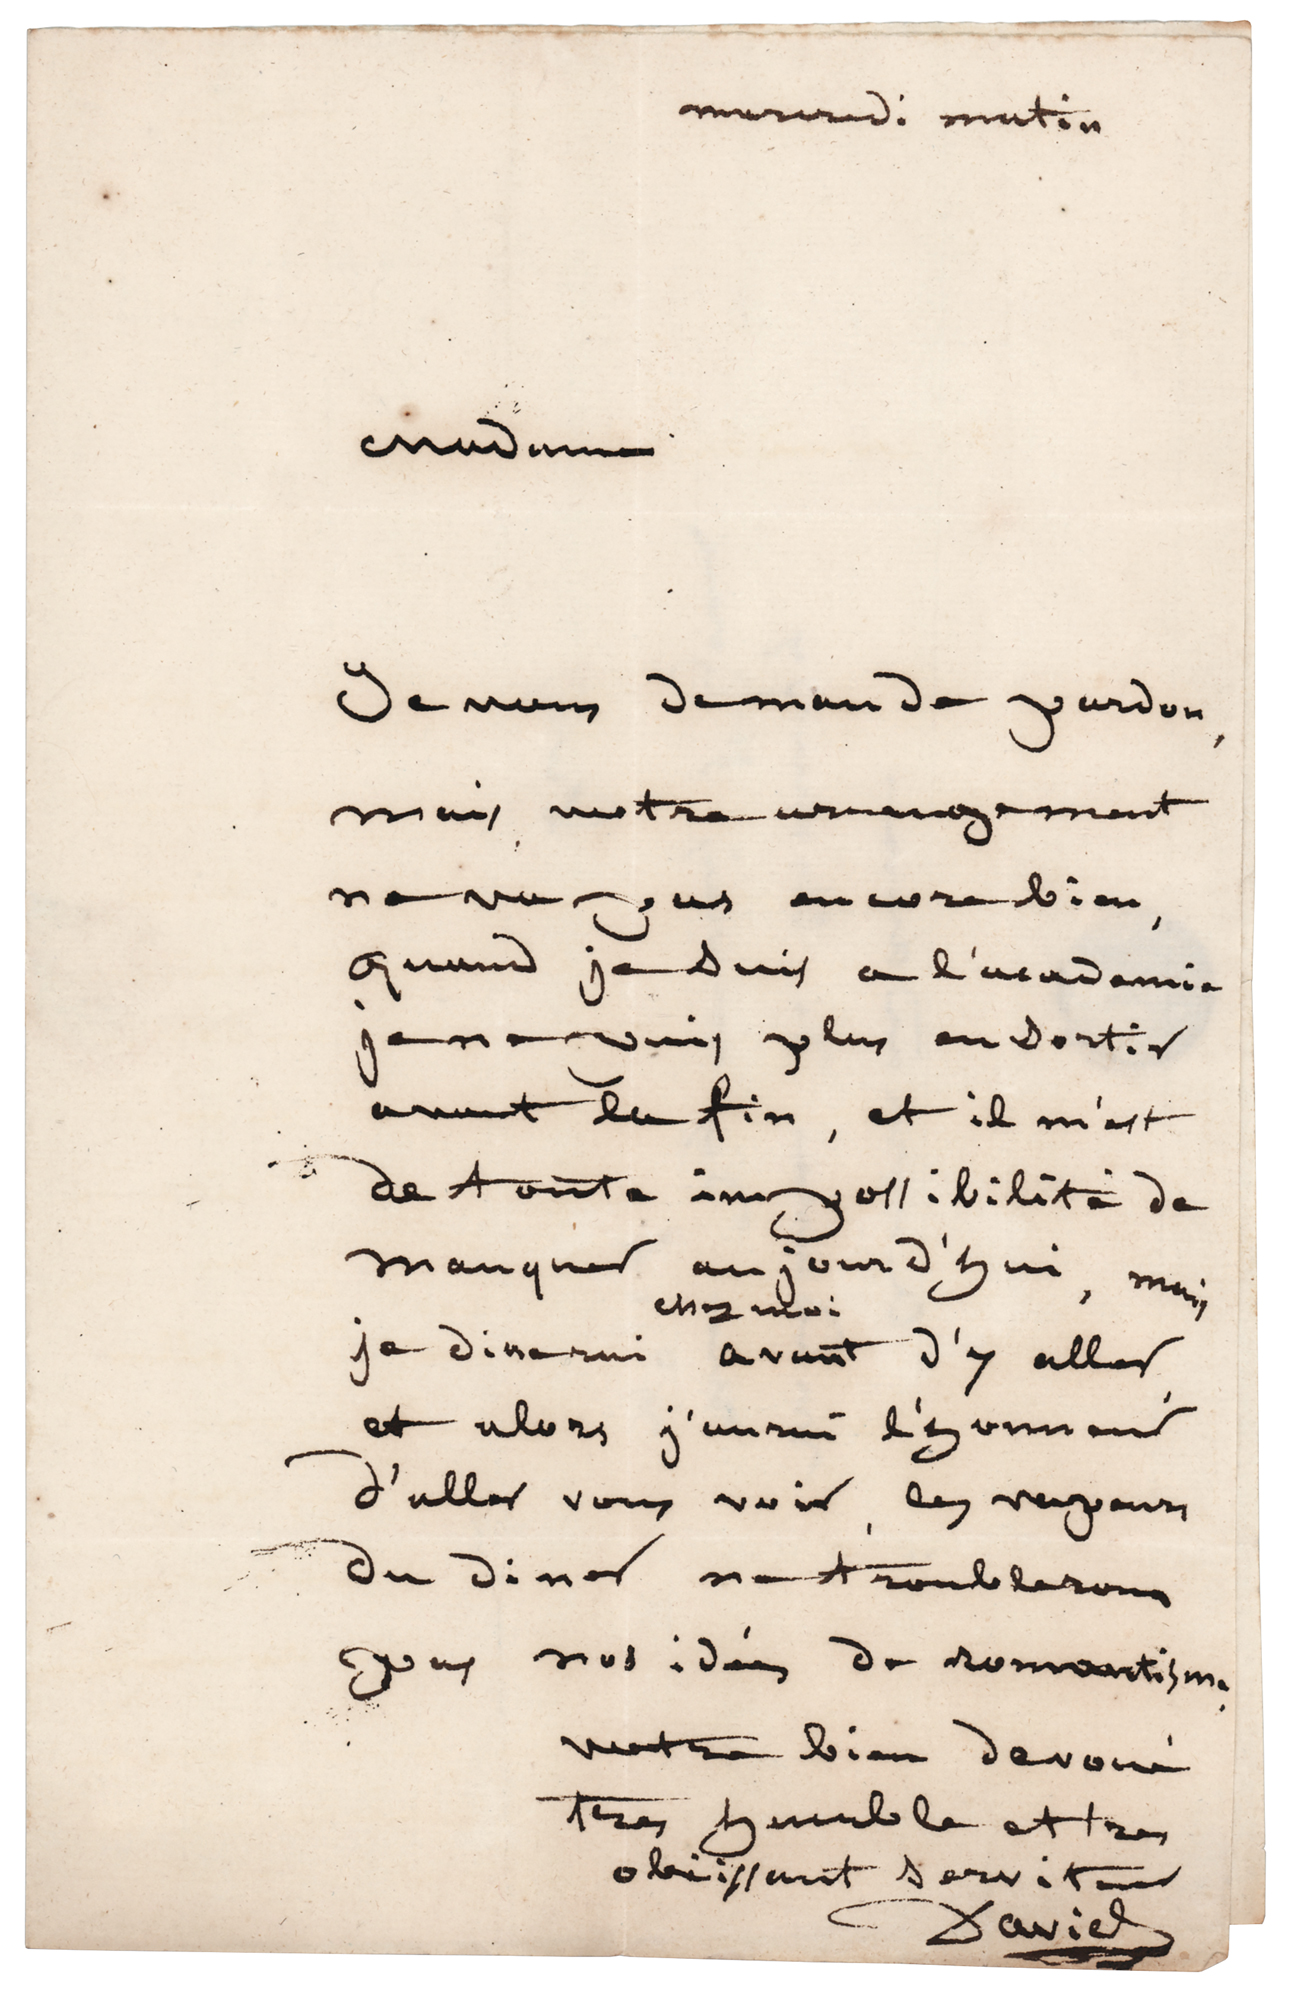 mercredi matin
Madame
Je vous demande pardon,
mais, votre arrangement
ne va pas encore bien,
quand je suis a l'academie
je ne puis plus en sortir
avant la fin, et il m'est
de toute impossibilité de
manquer aujourd'hui, mais
chez moi
je dinerai avant d'y aller
et alors j'aurai l'honneur
d'aller vous voir, les vapeurs
du diner ne troublerons
pas nos idées de romantisme,
votre bien devoué
tres humble et tres
obeissant serviteur
David